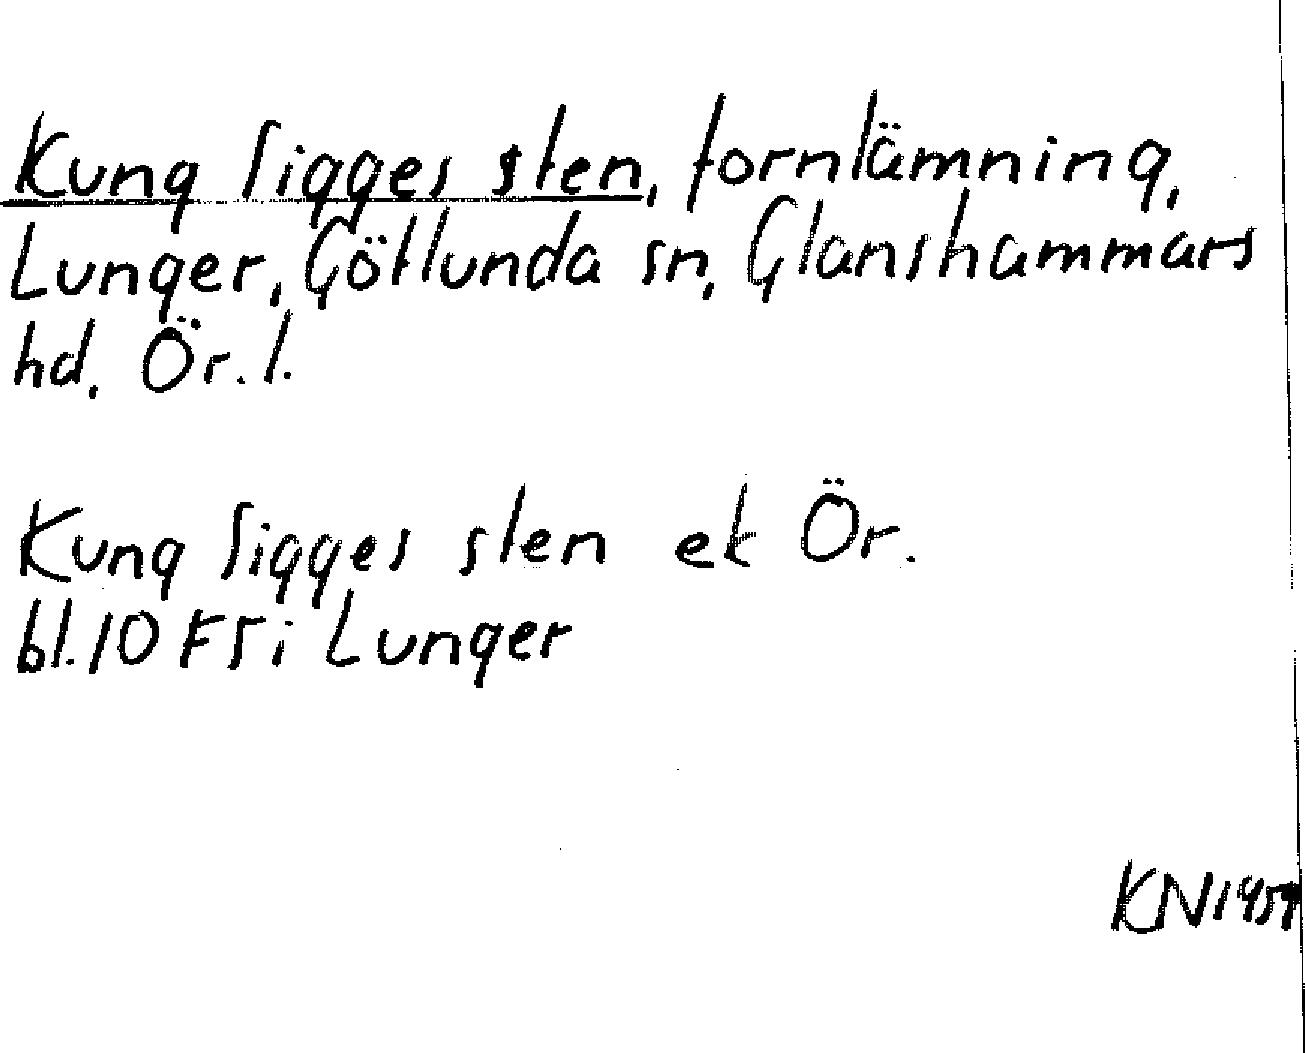 Kung Sigges sten, fornlämning,
Lunger, Götlunda sn, Glanshammars
hd, Ör. l.
Kung Sigges sten ek Ör.
bl. 10 FS i Lunger